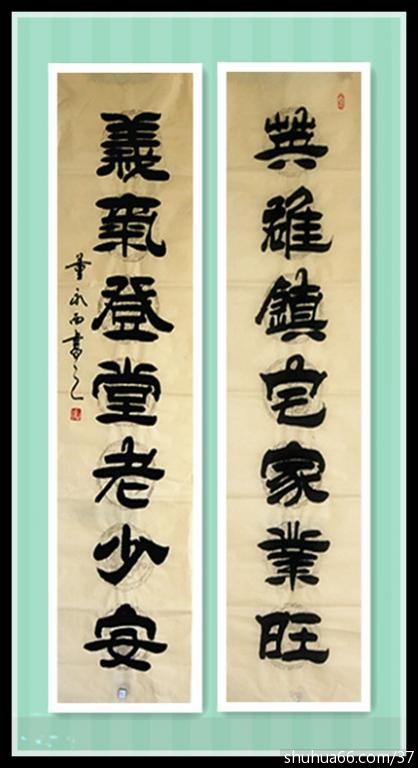 英雄鎮宅家業旺
義氣登堂老少安
董永西書之
shuhua66.com/37